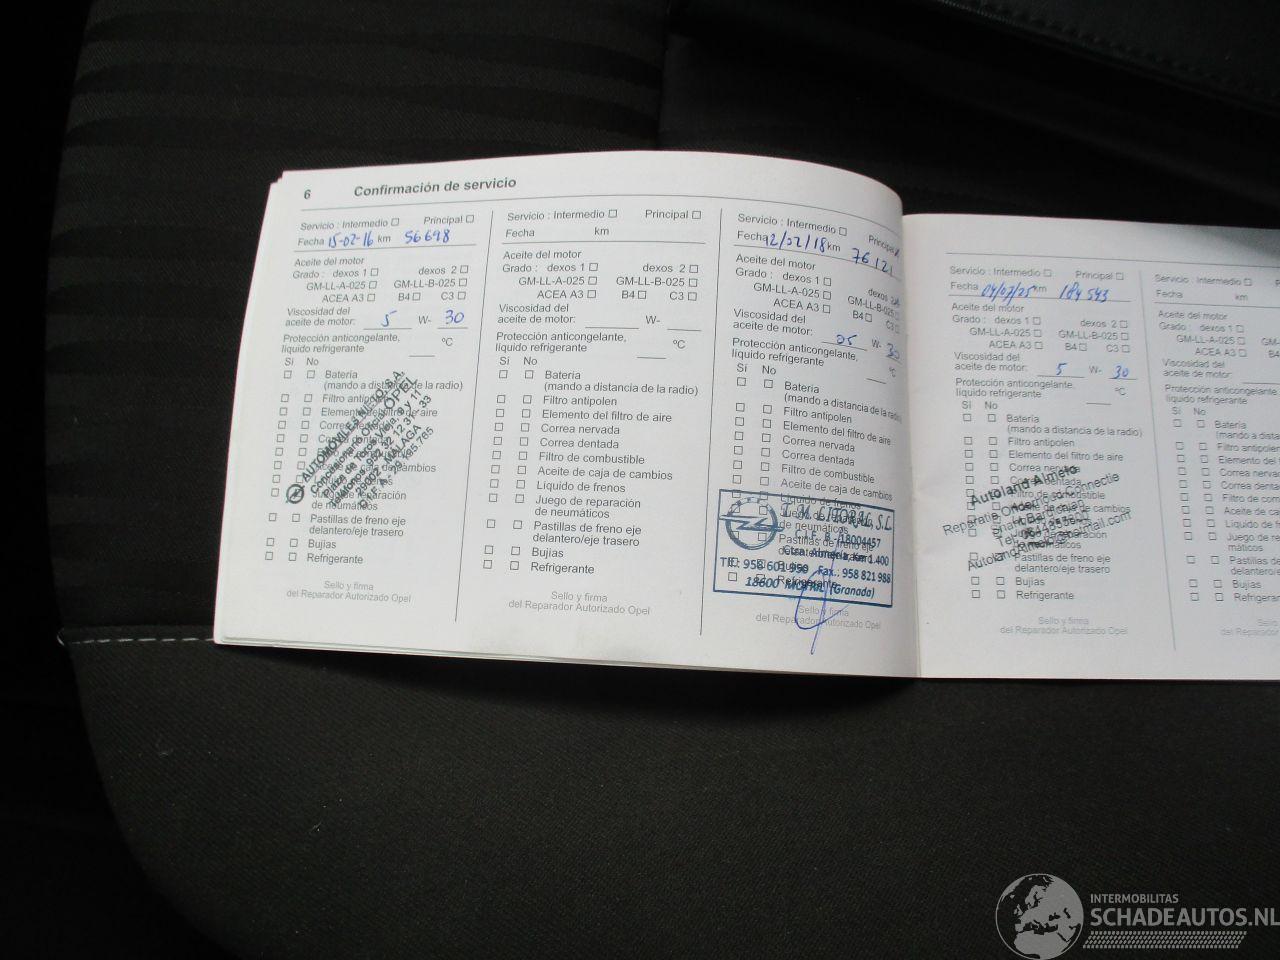 6 Confirmación de servicio
Servicio : Intermedio Principal
Fecha 15-02-16 km 56698
Aceite del motor
Grado : dexos 1 dexos 2
GM-LL-A-025 GM-LL-B-025
ACEA A3 B4 C3
Viscosidad del
aceite de motor: 5 W- 30
Protección anticongelante,
líquido refrigerante °C
Sí No
Batería
(mando a distancia de la radio)
Filtro antipolen
Elemento del filtro de aire
AUTOMOVILES NIETO, S.A.
Concesionario Oficial OPEL
MALAGA
Pastillas de freno eje
delantero/eje trasero
Bujías
Refrigerante
Sello y firma
del Reparador Autorizado Opel
Servicio : Intermedio Principal
Fecha km
Aceite del motor
Grado : dexos 1 dexos 2
GM-LL-A-025 GM-LL-B-025
ACEA A3 B4 C3
Viscosidad del
aceite de motor: W-
Protección anticongelante,
líquido refrigerante °C
Sí No
Batería
(mando a distancia de la radio)
Filtro antipolen
Elemento del filtro de aire
Correa nervada
Correa dentada
Filtro de combustible
Aceite de caja de cambios
Líquido de frenos
Juego de reparación
de neumáticos
Pastillas de freno eje
delantero/eje trasero
Bujías
Refrigerante
Sello y firma
del Reparador Autorizado Opel
Servicio : Intermedio Principal
Fecha 12/02/18 km 76121
Aceite del motor
Grado : dexos 1 dexos 2
GM-LL-A-025 GM-LL-B-025
ACEA A3 B4 C3
Viscosidad del
aceite de motor: 05 W- 30
Protección anticongelante,
líquido refrigerante °C
Sí No
Batería
(mando a distancia de la radio)
Filtro antipolen
Elemento del filtro de aire
Correa nervada
Correa dentada
Filtro de combustible
Aceite de caja de cambios
Líquido de frenos
T. M. LITORAL, S.L.
C.I.F. B-18004457
Ctra. Almería, Km 1.400
Tlf.: 958 601 950 Fax.: 958 821 988
18600 MOTRIL (Granada)
Refrigerante
Sello y firma
del Reparador Autorizado Opel
Servicio : Intermedio Principal
Fecha 04/07/25 km 184 543
Aceite del motor
Grado : dexos 1 dexos 2
GM-LL-A-025 GM-LL-B-025
ACEA A3 B4 C3
Viscosidad del
aceite de motor: 5 W- 30
Protección anticongelante,
líquido refrigerante °C
Sí No
Batería
(mando a distancia de la radio)
Filtro antipolen
Elemento del filtro de aire
Correa nervada
Autoland Almelo
Reparatie Onderhoud Connectie
Pastillas de freno eje
delantero/eje trasero
Bujías
Refrigerante
Sello y firma
del Reparador Autorizado Opel
Servicio : Intermedio
Fecha km
Aceite del motor
Grado : dexos 1
GM-LL-A-025 GM-
ACEA A3 B4
Viscosidad del
aceite de motor:
Protección anticongelante,
líquido refrigerante
Sí No
Batería
(mando a distanc
Filtro antipolen
Elemento del fi
Correa nervad
Correa denta
Filtro de com
Aceite de ca
Líquido de f
Juego de re
máticos
Pastillas de
delantero/e
Bujías
Refrigeran
Sello
del Reparador
INTERMOBILITAS
SCHADEAUTOS.NL